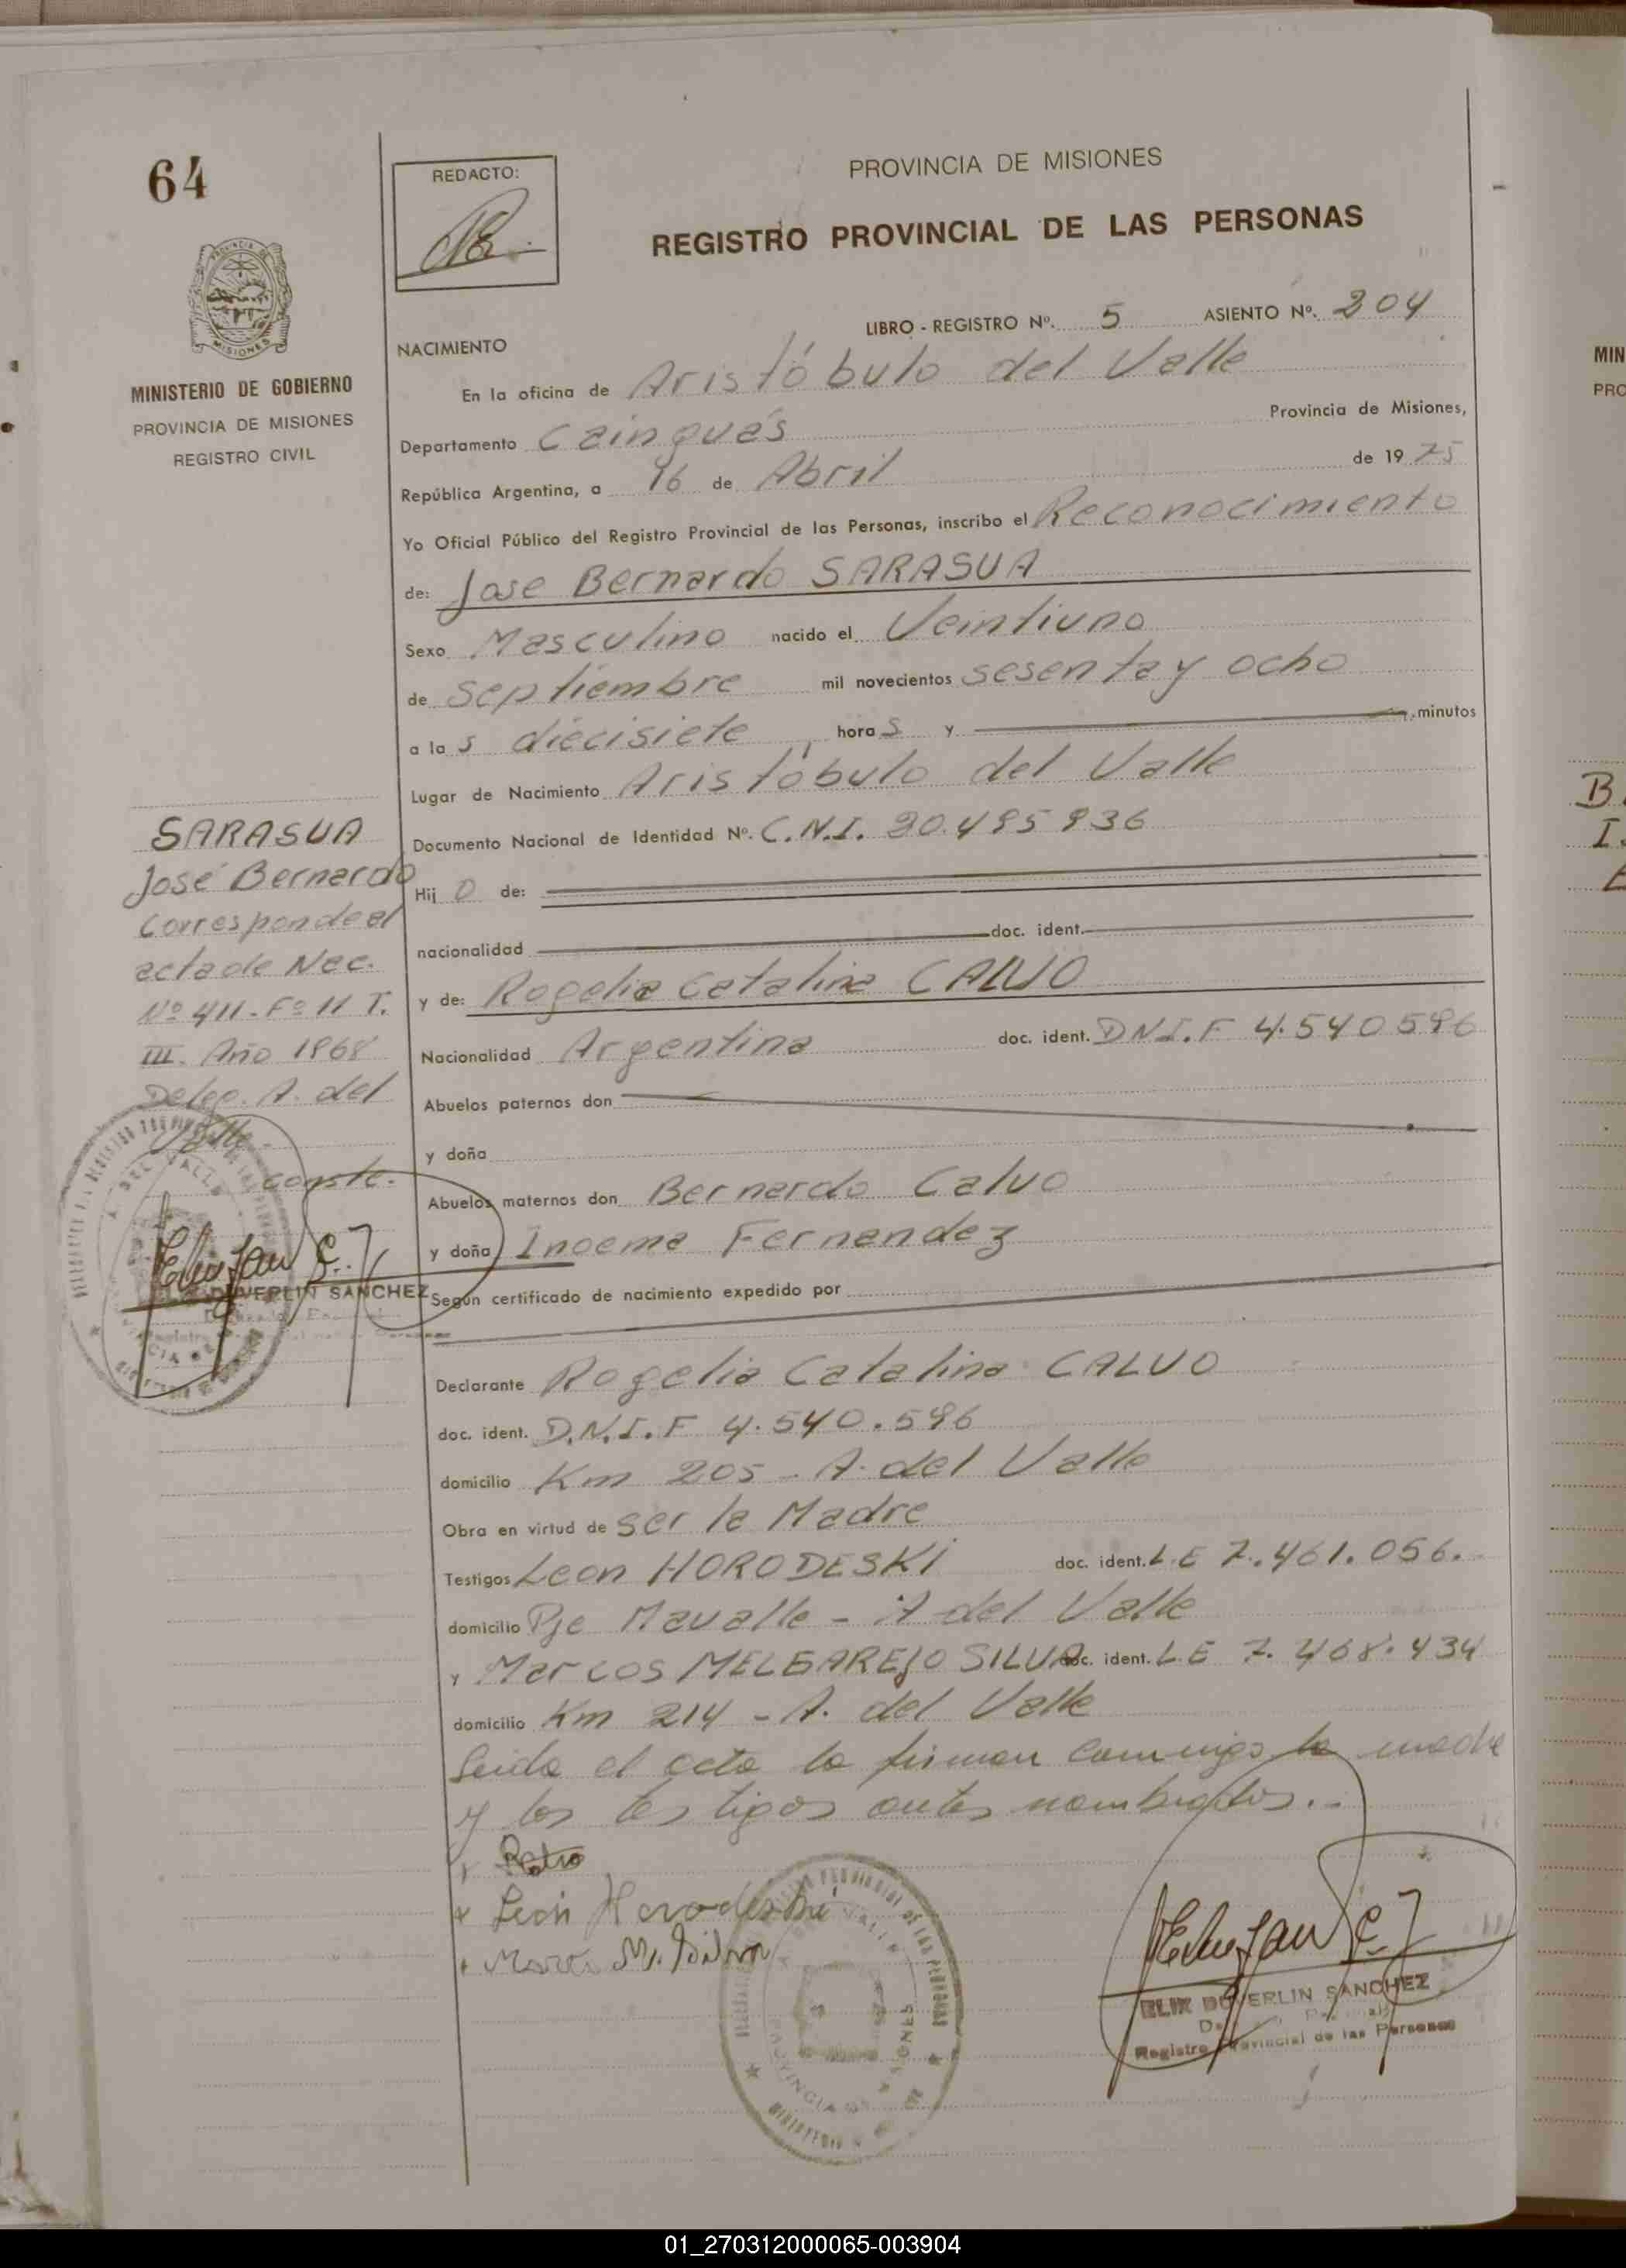 64
REDACTO:
PROVINCIA DE MISIONES
REGISTRO PROVINCIAL DE LAS PERSONAS
LIBRO - REGISTRO Nº. 5 ASIENTO Nº. 204
PROVINCIA DE
MISIONES
MINISTERIO DE GOBIERNO
PROVINCIA DE MISIONES
REGISTRO CIVIL
NACIMIENTO
En la oficina de Aristóbulo del Valle
Departamento Cainguás Provincia de Misiones,
República Argentina, a 16 de Abril de 19 75
Yo Oficial Público del Registro Provincial de las Personas, inscribo el Reconocimiento
de: Jose Bernardo SARASUA
Sexo Masculino nacido el Veintiuno
de Septiembre mil novecientos sesenta y ocho
a la s diecisiete hora s y minutos
Lugar de Nacimiento Aristóbulo del Valle
Documento Nacional de Identidad Nº. C.N.I. 20.495936
Hij o de:
nacionalidad doc. ident.
y de: Rogelia Catalina CALVO
Nacionalidad Argentina doc. ident. D.N.I.F 4.540596
Abuelos paternos don
y doña
Abuelos maternos don Bernardo Calvo
y doña Fernandez
Según certificado de nacimiento expedido por
Declarante Rogelia Catalina CALVO
doc. ident. D.N.I.F 4.540.596
domicilio Km 205 - A. del Valle
Obra en virtud de ser la Madre
Testigos Leon HORODESKI doc. ident. L.E 7.461.056.
domicilio Pje Mavalle - A del Valle
y Marcos MELGAREJO SILVA doc. ident. L.E 7.468.434
domicilio Km 214 - A. del Valle
Leida el acta la firman conmigo la madre
y los testigos antes nombrados.-
León Horodeski
M. Silva
SARASUA
José Bernardo
Corresponde al
acta de Nac.
Nº 411 - Fº 11 T.
III. Año 1968
Deleg. A. del
Valle.
conste.
DUVERLIN SANCHEZ
ELIX DUVERLIN SANCHEZ
Registro Provincial de las Personas
MIN
PRO
B
I
E
01_270312000065-003904